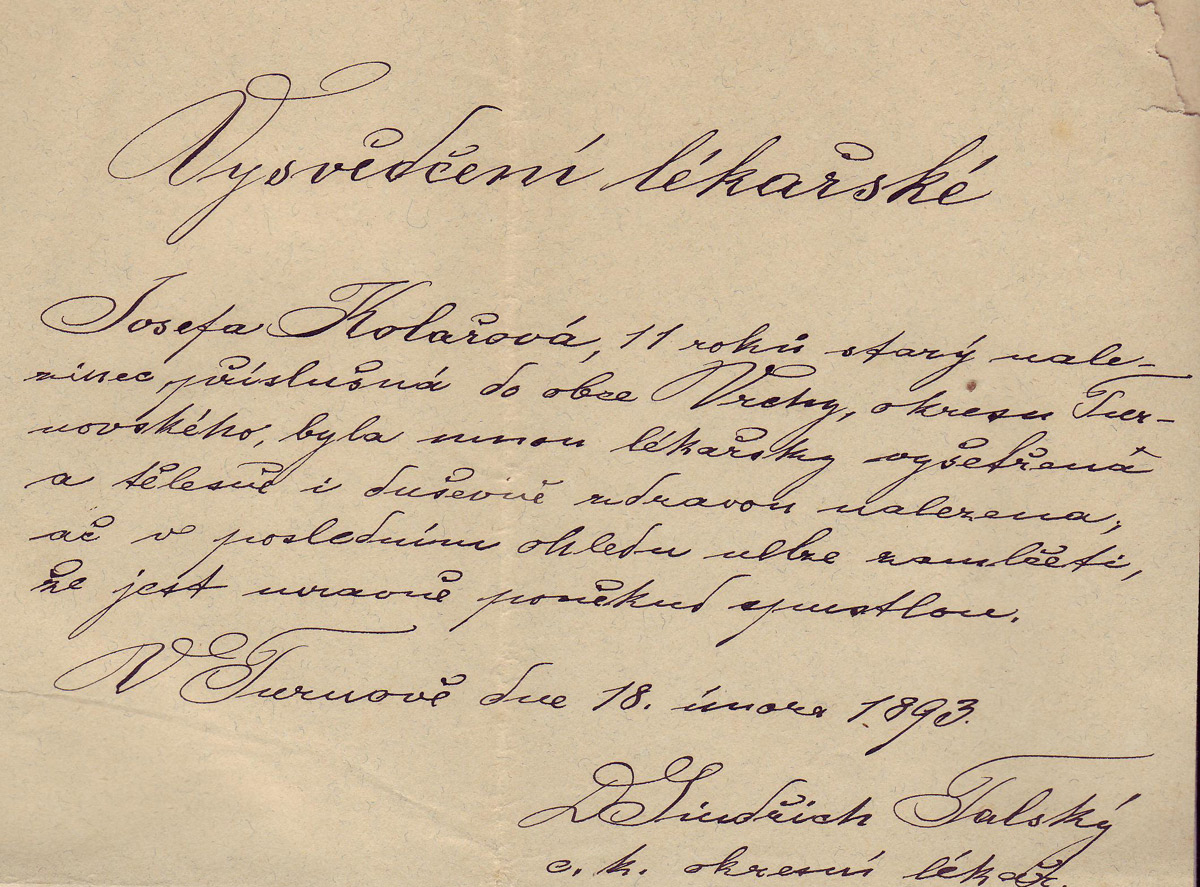 Vysvědčení lékařské
Josefa Kolářová, 11 roků starý nale-
zinec, příslušná do obce Vrchy, okresu Tur-
novského, byla mnou lékařsky vyšetřena
a tělesně i duševně zdravou nalezena,
ač v posledním ohledu nelze zamlčeti,
že jest mravně poněkud spustlou.
V Turnově dne 18. února 1893.
D Jindřich Talský
c. k. okresní lékař.